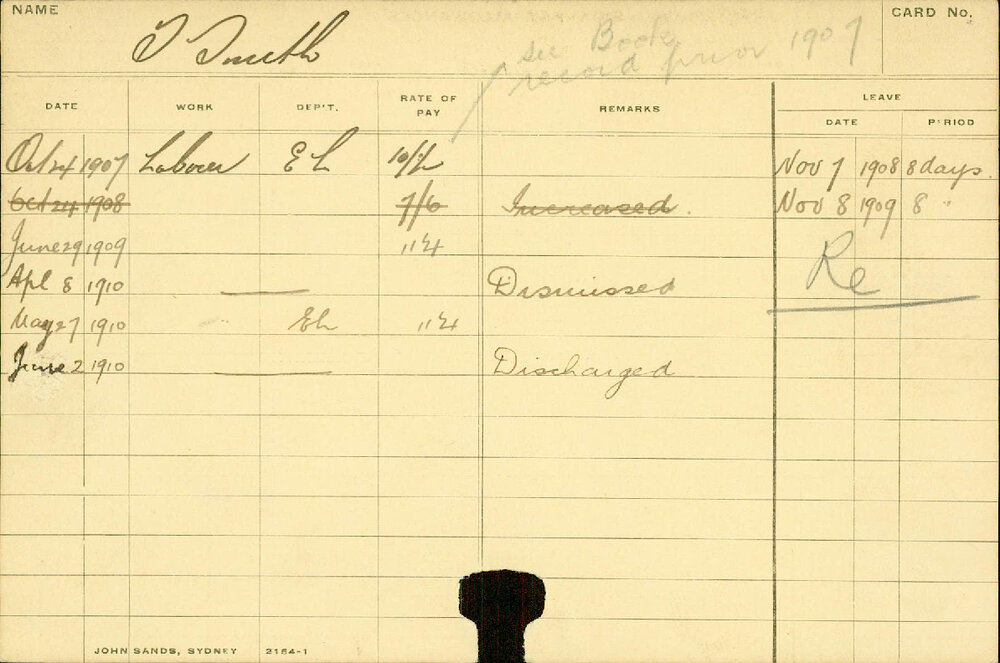 NAME
T Smith
see Book
record prior 1907
CARD No.
DATE WORK DEP'T. RATE OF PAY REMARKS LEAVE
DATE PERIOD
Oct 24 1907 Labourer E L Nov 7 1908 8 days.
Oct 24 1908 7/6 Increased. Nov 8 1909 8 "
June 29 1909
Re
Apl 8 1910 Dismissed
May 27 1910 EL
June 2 1910 Discharged
JOHN SANDS, SYDNEY 2154-1